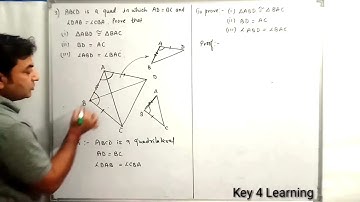 7) ABCD is a quad in which AD = BC and
∠DAB = ∠CBA, Prove that
(i) ΔABD ≅ ΔBAC
(ii) BD = AC
(iii) ∠ABD = ∠BAC
A
B
D
A
D
B
C
A
B
C
:- ABCD is a quadrilateral
AD = BC
∠DAB = ∠CBA
To prove - (i) ΔABD ≅ ΔBAC
(ii) BD = AC
(iii) ∠ABD = ∠BAC
Proof -
Key 4 Learning